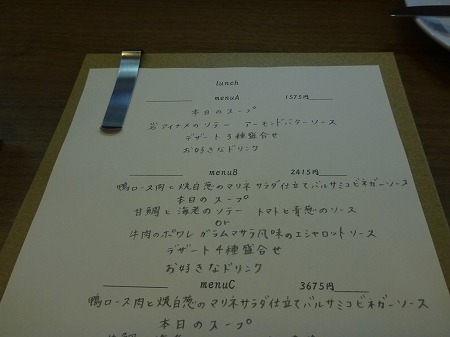 lunch
menuA 1575円
本日のスープ
岩アイナメのソテー アーモンドバターソース
デザート3種盛合せ
お好きなドリンク
menuB 2415円
鴨ロース肉と焼白葱のマリネ サラダ仕立てバルサミコビネガーソース
本日のスープ
甘鯛と海老のソテー トマトと青葱のソース
or
牛肉のポワレ ガラムマサラ風味のエシャロットソース
デザート4種盛合せ
お好きなドリンク
menuC 3675円
鴨ロース肉と焼白葱のマリネサラダ仕立てバルサミコビネガーソース
本日のスープ